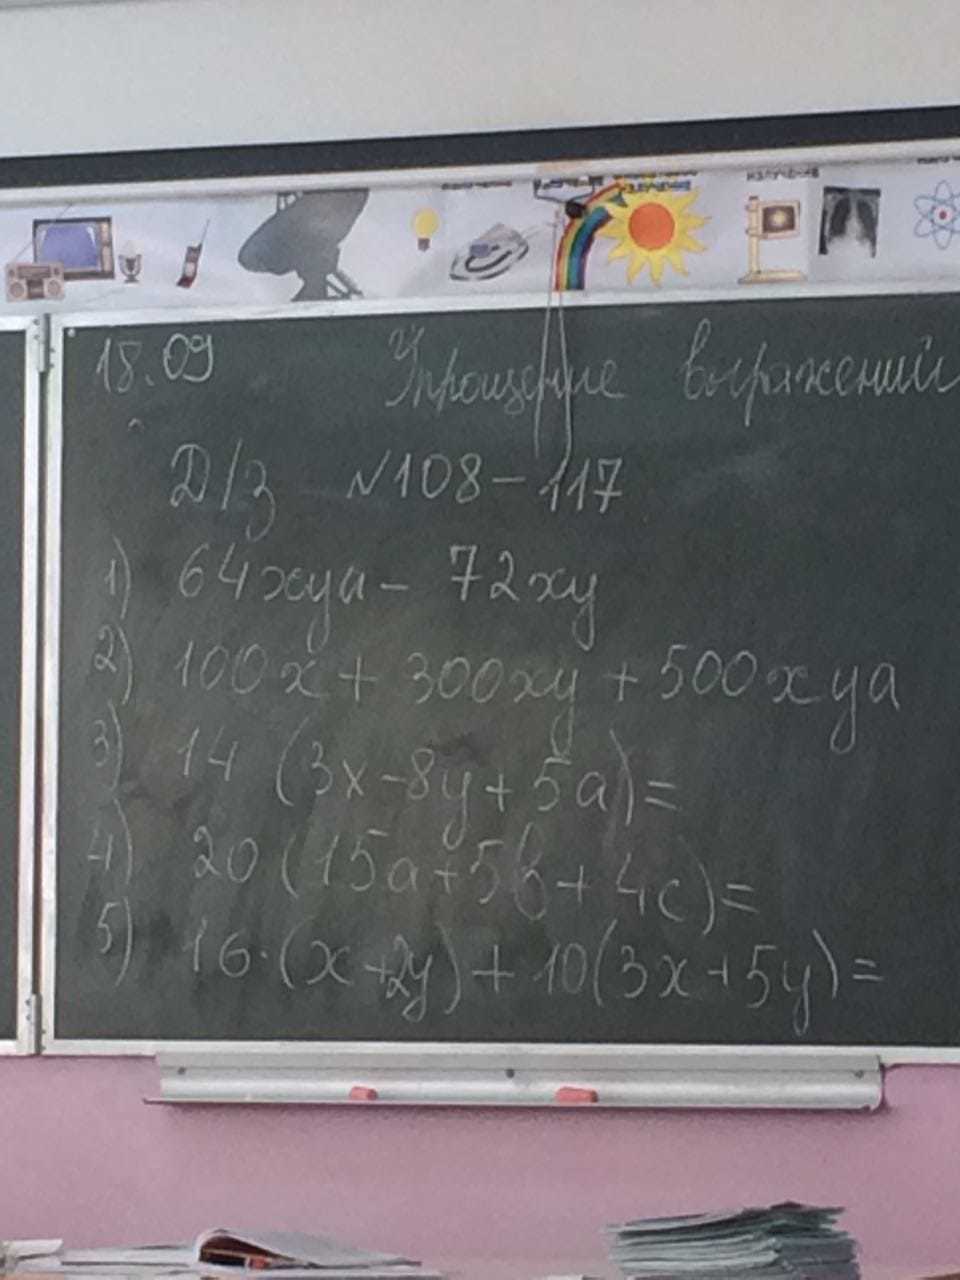 излучение
18.09 Упрощение выражений
Д/з №108-117
1) 64xya - 72xy
2) 100x + 300xy + 500xya
3) 14 (3x-8y+5a)=
4) 20 (15a+5b+4c)=
5) 16·(x+2y)+10(3x+5y)=